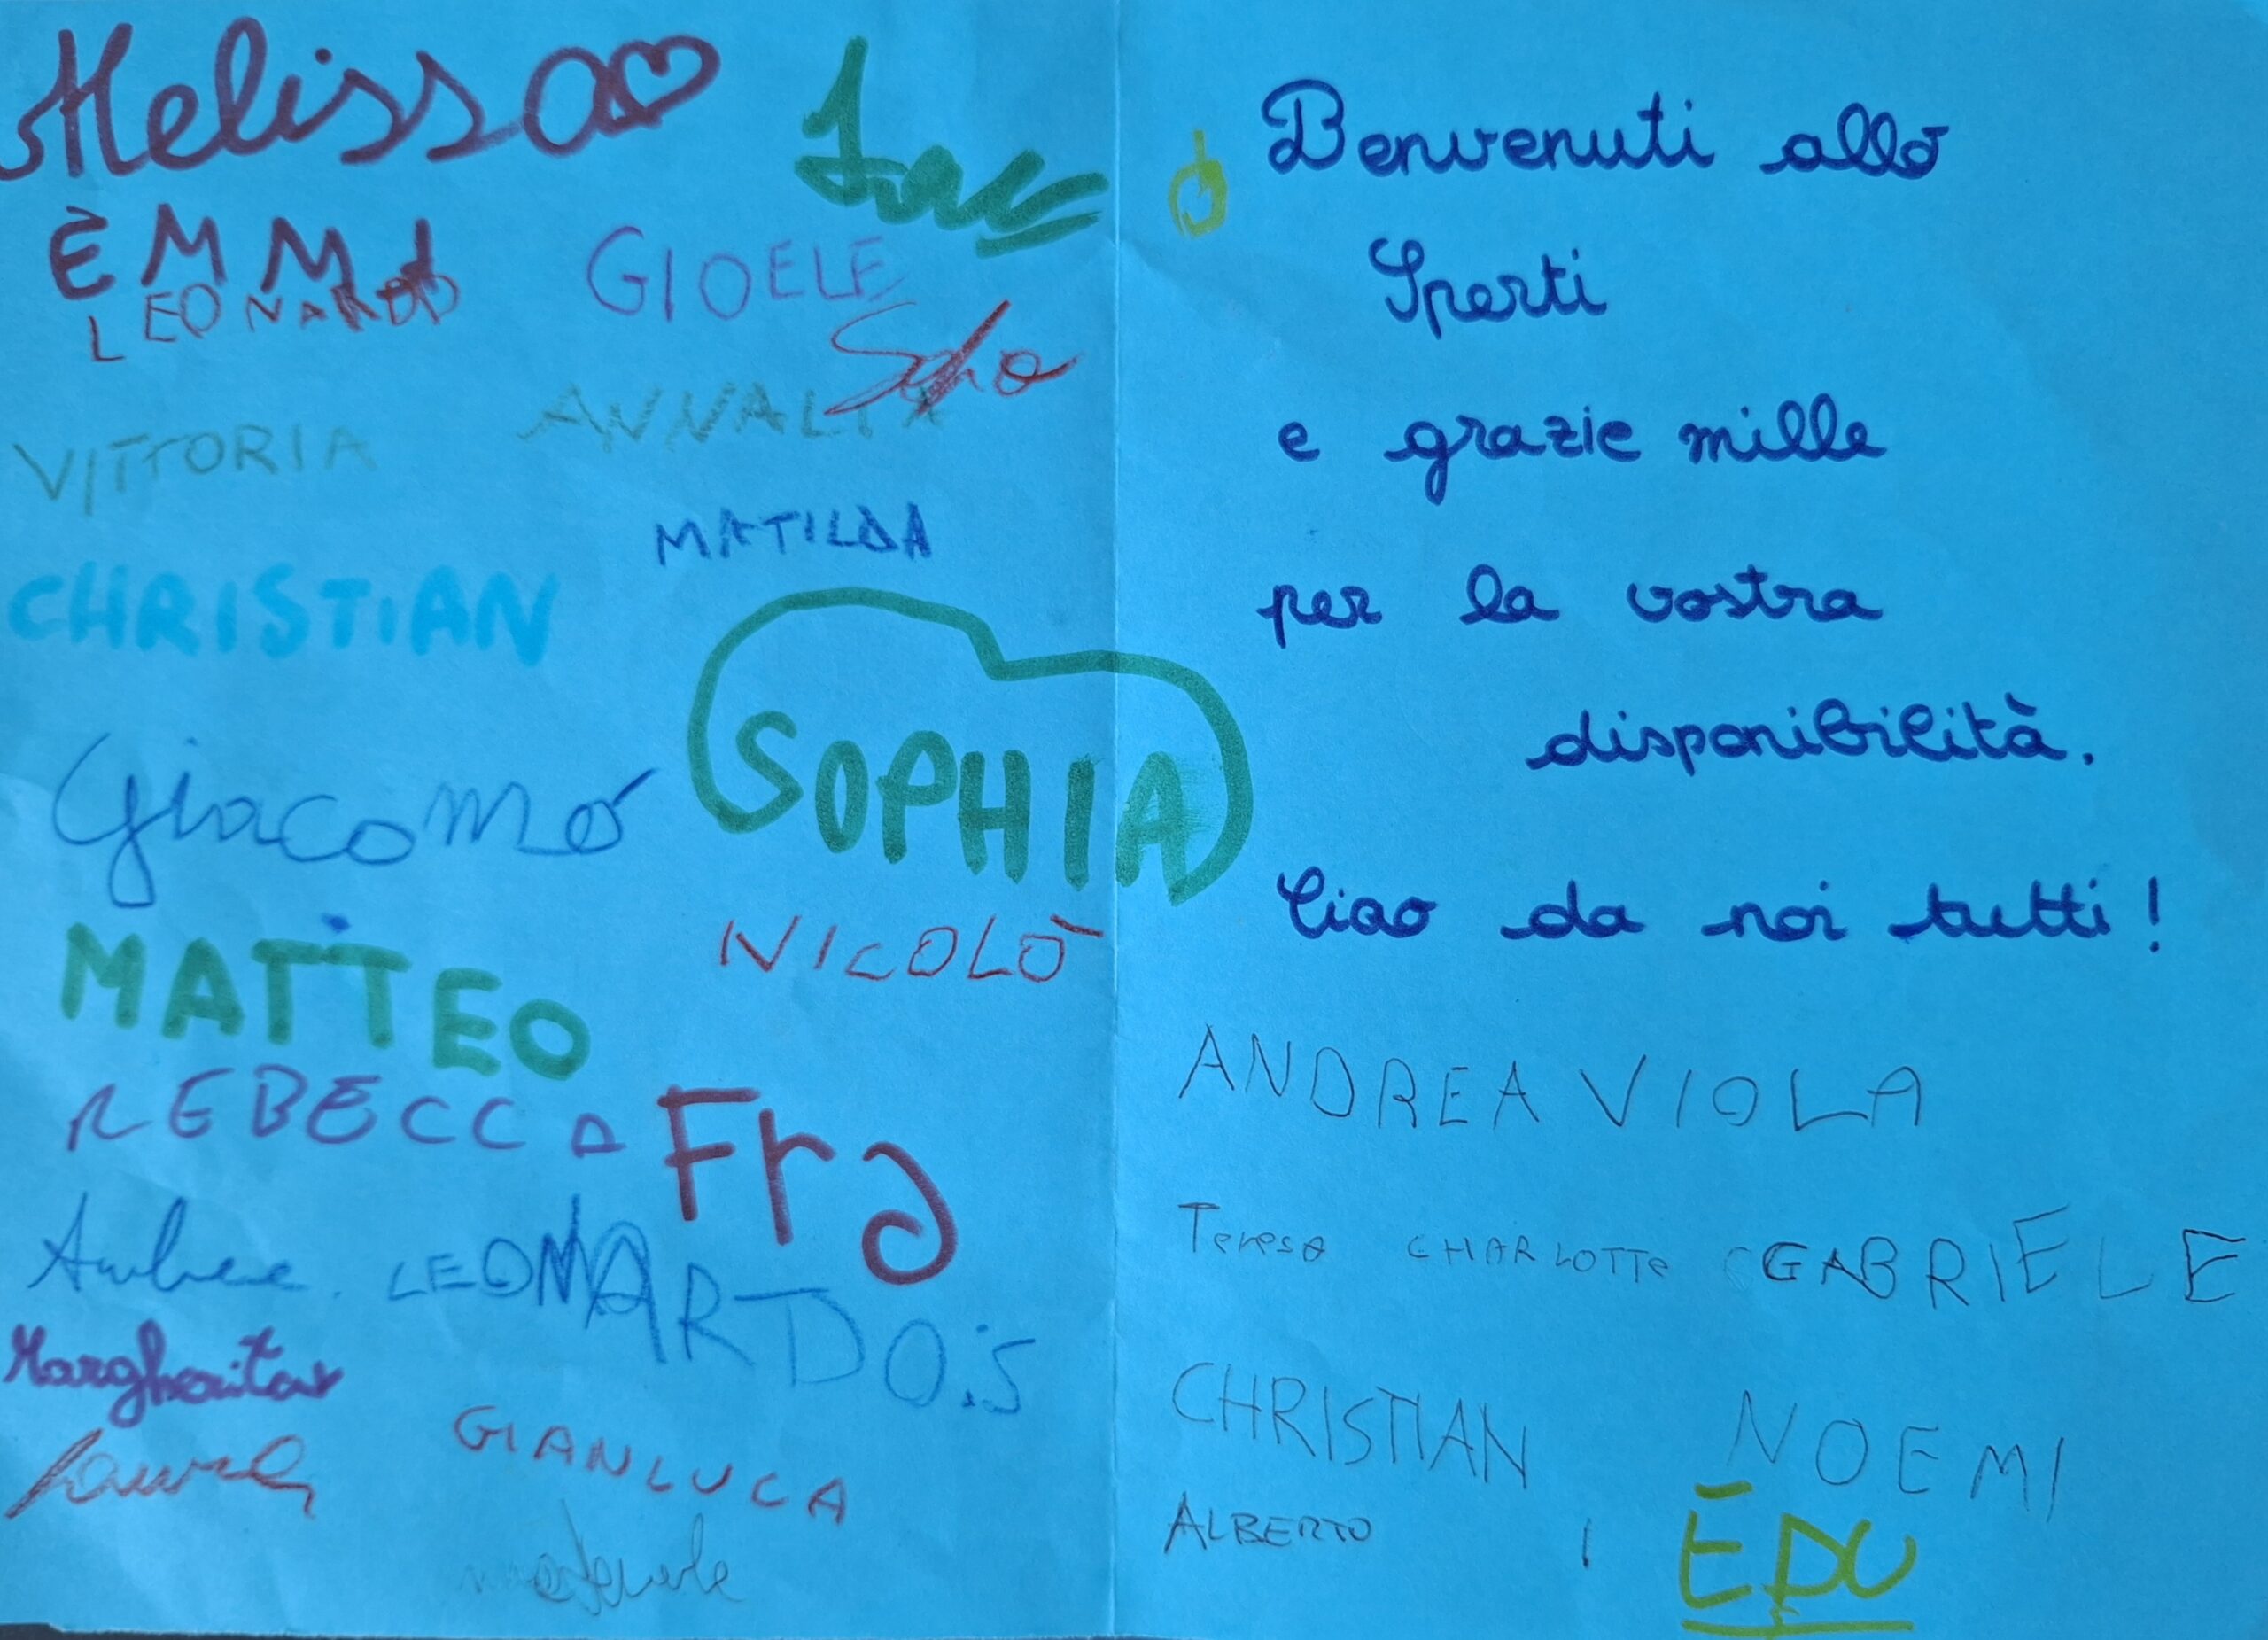 Melissa
EMMA
LEONARDO
GIOELE
VITTORIA
MATILDA
CHRISTIAN
Giacomo
SOPHIA
NICOLÒ
MATTEO
REBECCA
Fra
LEONARDO.S
Margherita
Laura
GIANLUCA
Benvenuti allo
Sperti
e grazie mille
per la vostra
disponibilità.
Ciao da noi tutti!
ANDREA VIOLA
Teresa CHARLOTTE GABRIELE
CHRISTIAN NOEMI
ALBERTO
EDU